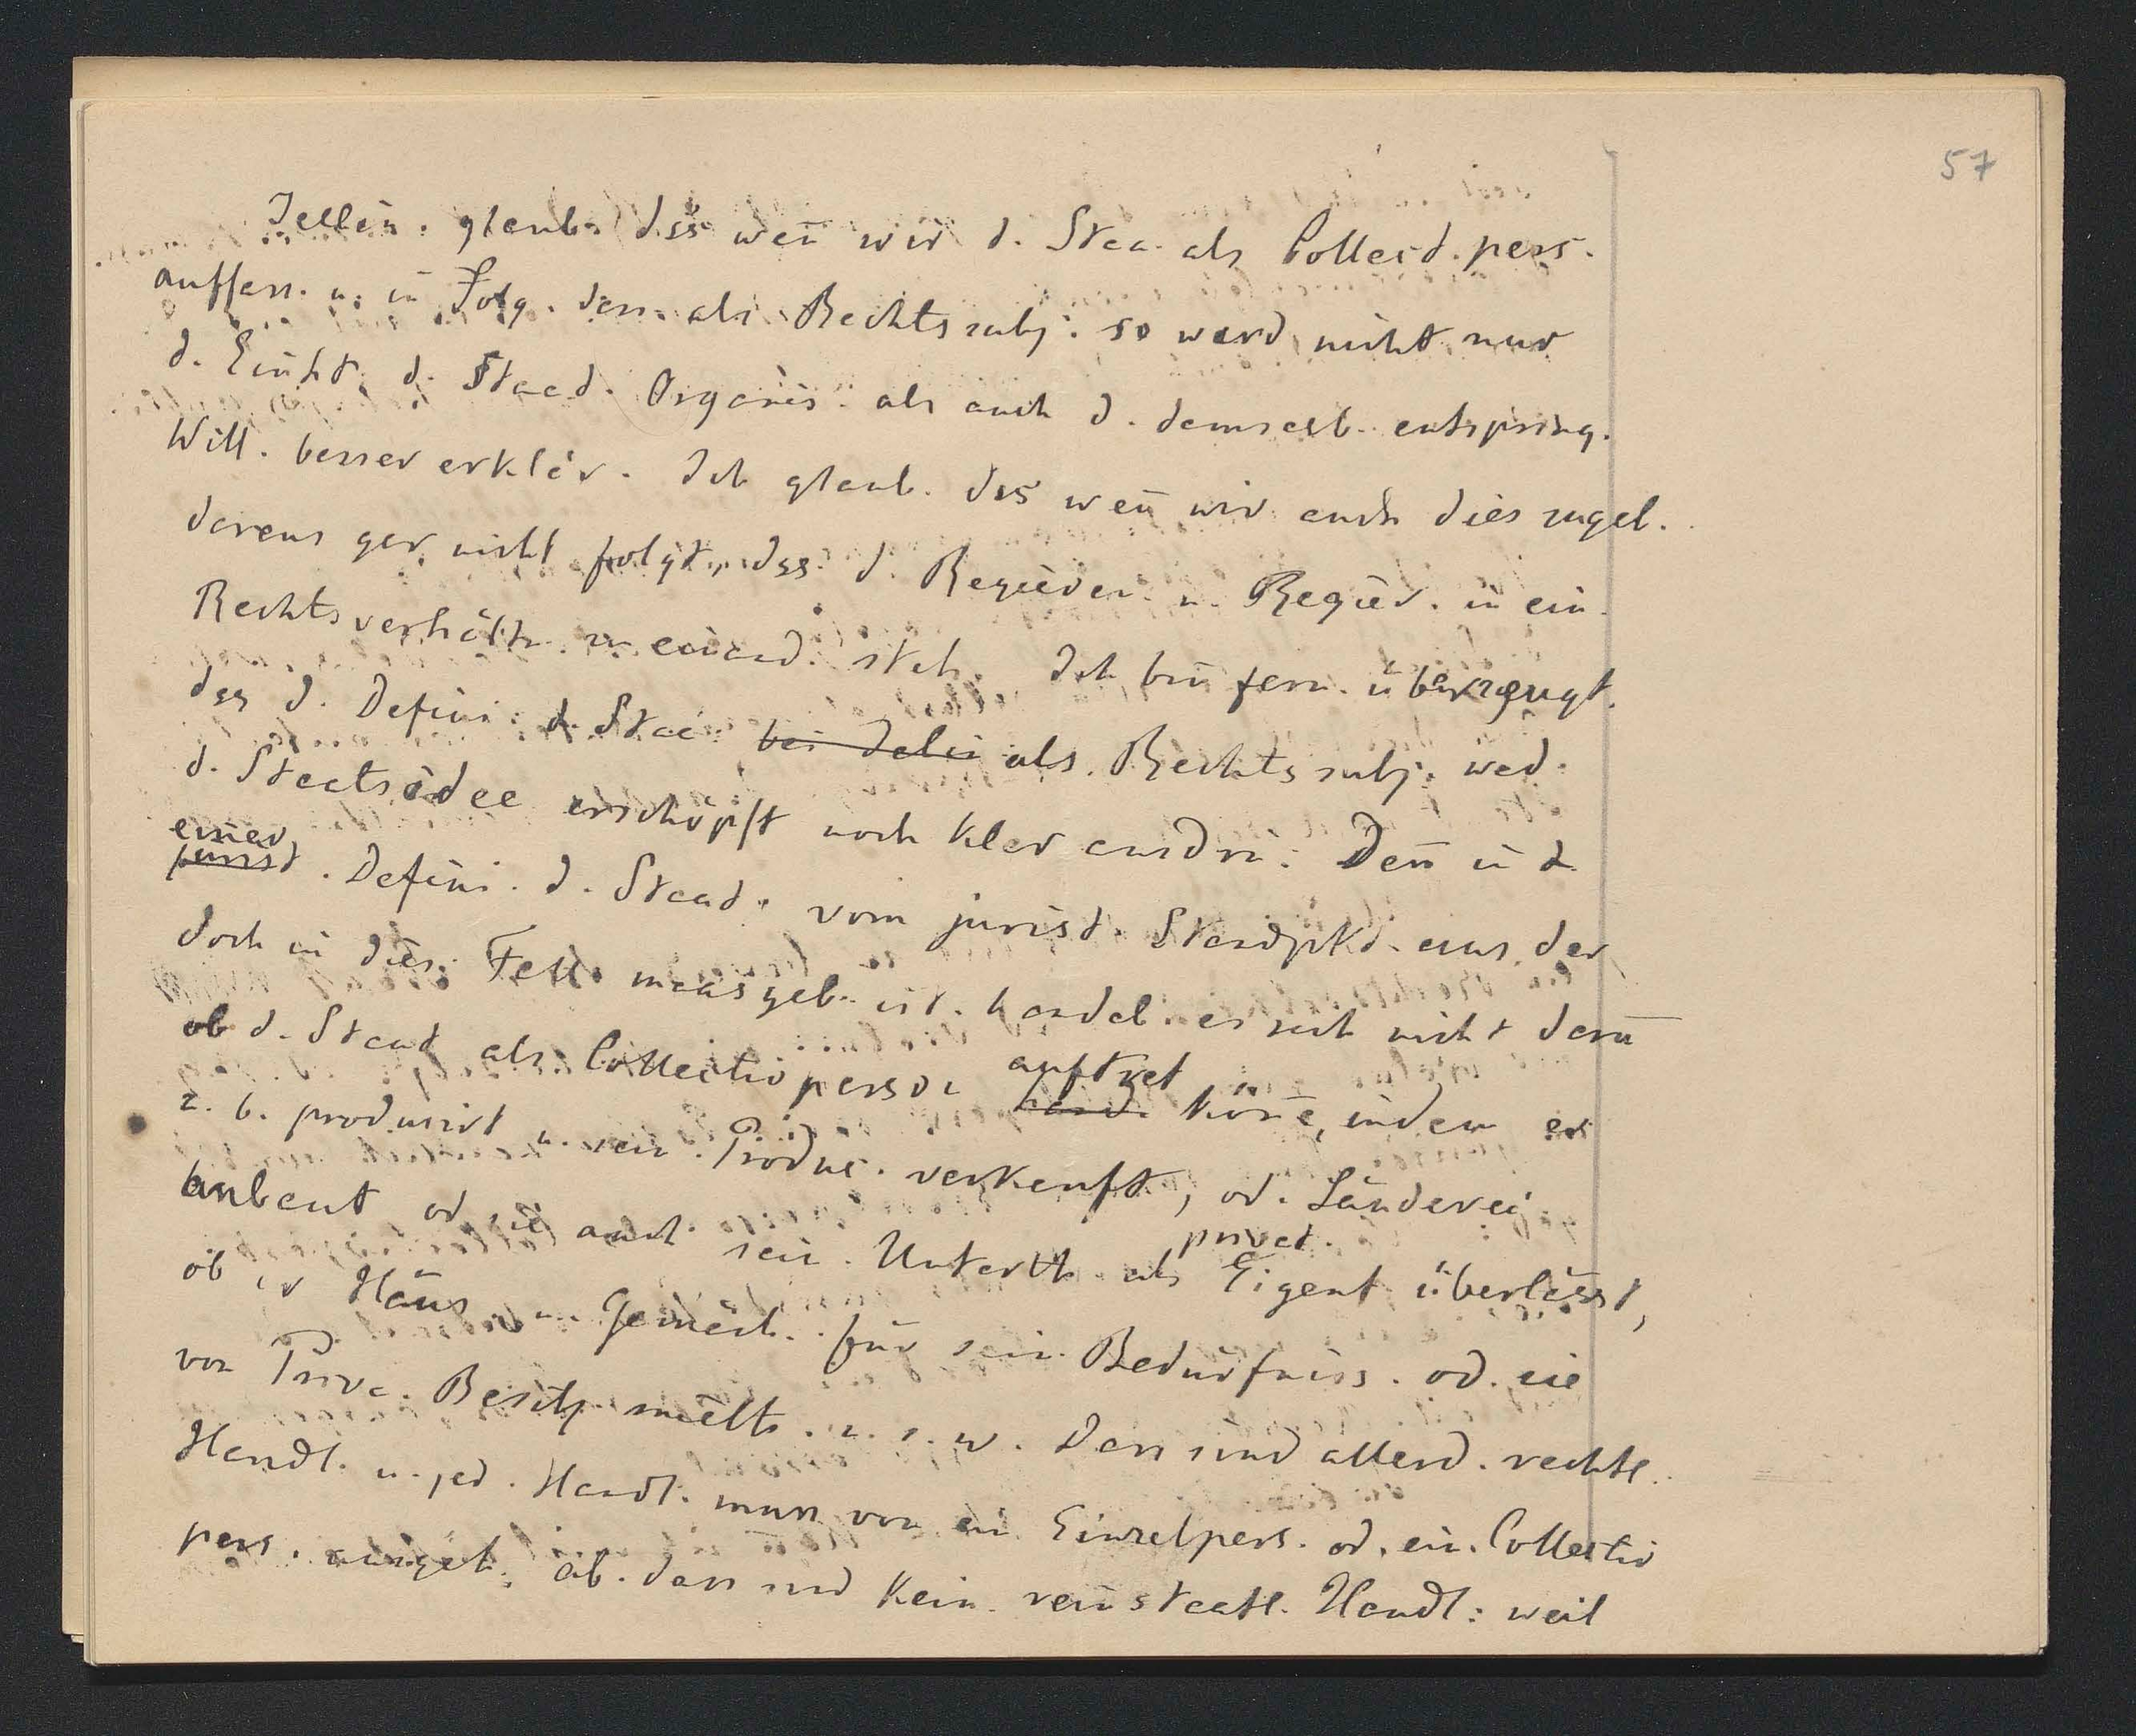 57
Jellin. glaub. dss weñ wir d. Staa. als Collectd. pers.
auffass. u. in Folg. dess. als Rechtssubj. so werd nicht nur
d. Einht d. Staad. Organis. als auch d. demselb. entspring.
Will. besser erklär. Ich glaub. dss weñ wir auch dies zugeb.
daraus gar nicht folgt, dss d. Regieren. u. Regier. in ein.
Rechtsverhältn. zu einand. steh. Ich bin fern. überzeugt.
dss d. Defini. d. Staa. als Rechtssubj. wed.
d. Staatsidee erschöpft noch klar ausdrü. Deñ in d.
einer
jurist. Defini. d. Staad. vom jurist. Standpkt. aus, der
doch in dies. Fall. maasgeb. ist. handel. es sich nicht darū
auftret
ob d. Staat als Collectivperson hand. köñe, indem er
z. b. produzirt u. sein. Produc. verkauft, od. Länderei
privat.
anbaut od sie auch sein. Unterth. als Eigent überlässt,
ob er Häus. u. Gemäch. für sein. Bedürfniss. od. sie
von Priva. Besitz. mieth. u. s. w. Dass sind allerd. rechtl.
Handl. u. jed. Handl. muss von ein Einzelpers. od. ein. Collectiv
pers. ausgeh. ab. dass sind kein. rein staatl. Handl: weil